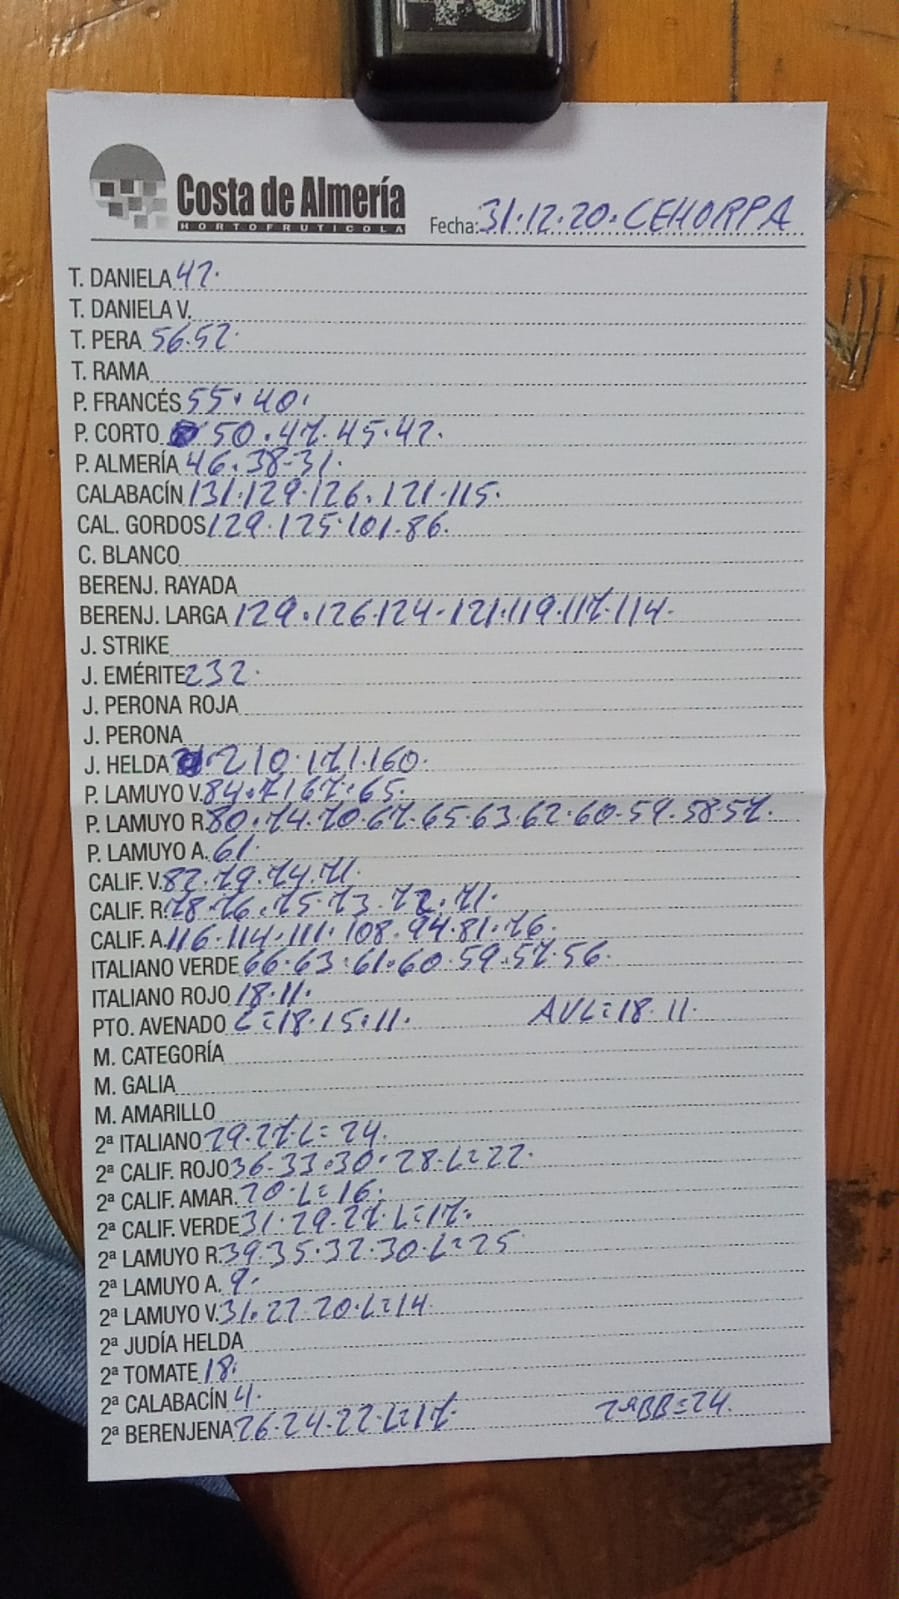 Costa de Almería
HORTOFRUTICOLA
Fecha: 31·12·20· CEHORPA
T. DANIELA 42·
T. DANIELA V.
T. PERA 56·52·
T. RAMA
P. FRANCÉS 55· 40·
P. CORTO 50·47·45·42·
P. ALMERÍA 46·38-31·
CALABACÍN 131·129·126·121·115·
CAL. GORDOS 129·125·101·86·
C. BLANCO
BERENJ. RAYADA
BERENJ. LARGA 129·126·124-121·119·117·114·
J. STRIKE
J. EMÉRITE 232·
J. PERONA ROJA
J. PERONA
J. HELDA 210·171·160·
P. LAMUYO V. 84·71 67·65·
P. LAMUYO R. 80·74·70·67·65·63·62·60·59·58·57·
P. LAMUYO A. 61·
CALIF. V. 82·79·74·71·
CALIF. R. 78·76·75·73·72·71·
CALIF. A. 116·114·111·108·94·81·76·
ITALIANO VERDE 66·63·61·60·59·57·56·
ITALIANO ROJO 18·11·
PTO. AVENADO L=18·15·11· AVL=18·11·
M. CATEGORÍA
M. GALIA
M. AMARILLO
2ª ITALIANO 29·27·L=24·
2ª CALIF. ROJO 36·33·30·28·L=22·
2ª CALIF. AMAR. 20·L=16·
2ª CALIF. VERDE 31·29·27·L=17·
2ª LAMUYO R. 39·35·32·30·L=25
2ª LAMUYO A. 9·
2ª LAMUYO V. 31·22 20·L=14
2ª JUDÍA HELDA
2ª TOMATE 18·
2ª CALABACÍN 4·
2ª BERENJENA 26·24·22·L=17· 2ªBB=24·